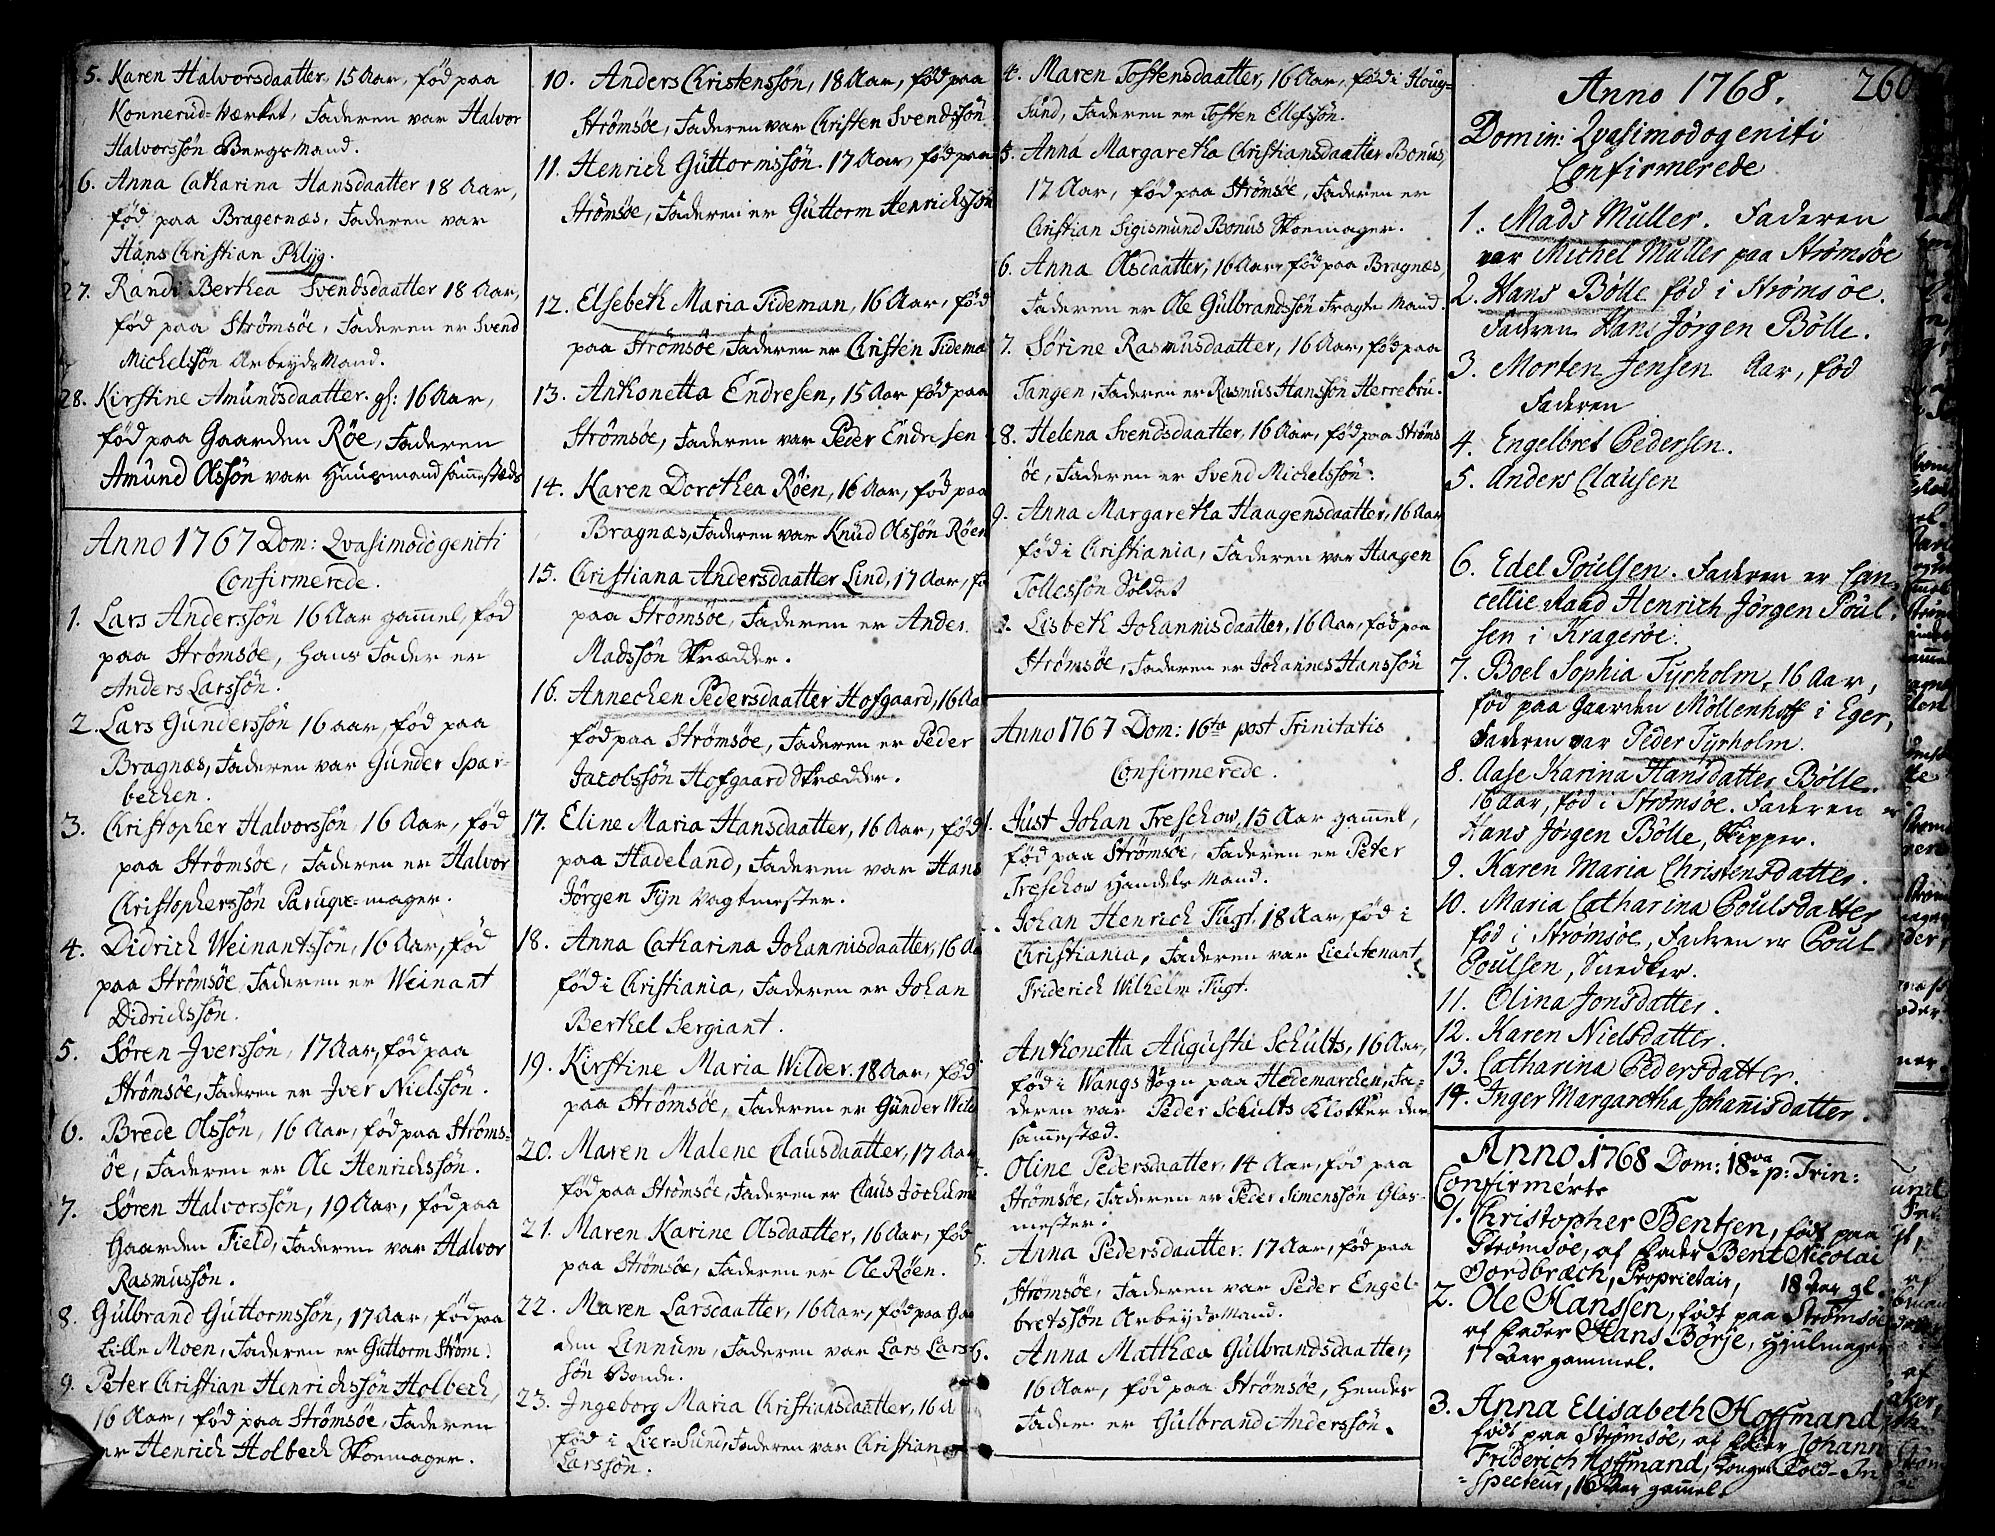 5. Karen Halvorsdaatter, 15 Aar, fød paa
Konnerud-Værket, Faderen var Halvor
Halvorssøn BergsMand.
6. Anna Catharina Hansdaatter 18 Aar,
fød paa Bragernæs, Faderen var
Hans Christian Pklÿg.
27. Randi Berthea Svendsdaatter 18 Aar,
fød paa Strømsøe, Faderen er Svend
Michelssøn ArbeydsMand.
28. Kirstine Amundsdaatter. gl: 16 Aar,
fød paa Gaarden Røe, Faderen
Amund Olssøn var Huusmand sammestæds
Anno 1767 Dom: Qvasimodogeniti
Confirmerede.
1. Lars Anderssøn 16 Aar gammel, fød
paa Strømsøe, hans Fader er
Anders Larssøn.
2. Lars Gunderssøn 16 aar, fød paa
Bragnæs, Faderen var Gunder Spar-
bechen.
3. Christopher Halvorssøn, 16 Aar, fød
paa Strømsøe, Faderen er Halvor
Christopherssøn Paruqve-mager.
4. Didrich Weinantssøn, 16 Aar, fød
paa Strømsøe, Faderen er Weinant
Didrichssøn.
5. Søren Iverssøn, 17 Aar, fød paa
Strømsøe, Faderen er Iver Nielssøn.
6. Brede Olssøn, 16 Aar, fød paa Strøms-
øe, Faderen er Ole Henrichssøn.
7. Søren Halvorssøn, 19 Aar, fød paa
Gaarden Field, Faderen var Halvor
Rasmussøn.
8. Gulbrand Guttormssøn, 17 Aar, fød paa
Lille Moen, Faderen er Guttorm Strøm.
9. Peter Christian Henrichssøn Holbech,
16 Aar, fød paa Strømsøe, Faderen
er Henrich Holbech Skoemager.
10. Anders Christenssøn, 18 Aar, fød paa
Strømsøe, Faderen var Christen Svendssøn
11. Henrich Guttormssøn. 17 Aar, fød paa
Strømsøe, Faderen er Guttorm Henrichssøn
12. Elsebeth Maria Tideman, 16 Aar, fød
paa Strømsøe, Faderen er Christen Tidema
13. Anthonetta Endresen, 15 Aar fød paa
Strømsøe, Faderen var Peder Endresen
14. Karen Dorothea Røen, 16 Aar, fød paa
Bragnæs, Faderen var Knud Olssøn Røen
15. Christiana Andersdaatter Lind, 17 Aar, fø
paa Strømsøe, Faderen er Anders
Madssøn Skrædder.
16. Annechen Pedersdaatter Hofgaard, 16 Aa
fød paa Strømsøe, Faderen er Peder
Jacobssøn Hofgaard Skrædder.
17. Eline Maria Hansdaatter, 16 Aar, fød
paa Hadeland, Faderen var Hans
Jørgen Fÿn Vagtmester.
18. Anna Catharina Johannisdaatter, 16 Aa
fød i Christiania, Faderen er Johan
Berthel Sergiant.
19. Kirstine Maria Wilder. 18 Aar, fød
paa Strømsøe, Faderen er Gunder Wild
20. Maren Malene Clausdaatter, 17 Aar
fød paa Strømsøe, Faderen er Claus Jochums
21. Maren Karine Olsdaatter, 16 Aar, fød
paa Strømsøe, Faderen er Ole Røen.
22. Maren Larsdaatter, 16 Aar, fød paa Gaa
den Linnum, Faderen var Lars Lars
søn Bonde.
23. Ingeborg Maria Christiansdaatter, 16 A
fød i Lier-Sund, Faderen var Christian
Larssøn.
4. Maren Tostensdaatter, 16 Aar, fød i Houg-
sund, Faderen er Tosten Ellefssøn.
5. Anna Margaretha Christiansdaatter Bonus,
17 Aar, fød paa Strømsøe, Faderen er
Christian Sigismund Bonus Skoemager.
6. Anna Olsdaatter, 16 Aar, fød paa Bragnæs,
Faderen er Ole Gulbrandssøn Fragte Mand.
7. Sørine Rasmusdaatter, 16 Aar, fød paa
Tangen, Faderen er Rasmus Hanssøn Herrebru.
8. Helena Svendsdaatter, 16 Aar, fød paa Strøms
øe, Faderen er Svend Michelssøn.
9. Anna Margaretha Haagensdaatter, 16 Aar
fød i Christiania, Faderen var Haagen
Tollessøn Soldat
Lisbeth Johannisdaatter, 16 Aar, fød paa
Strømsøe, Faderen er Johannes Hanssøn
Anno 1767 Dom: 16ta post Trinitatis
Confirmerede.
1. Just Johan Treschow, 15 Aar gammel,
fød paa Strømsøe, Faderen er Peter
Treschow Handels Mand.
Johan Henrich Fugt. 18 Aar, fød i
Christiania, Faderen var Lieutenant
Friderich Wilhelm Fugt.
Anthonetta Augusta Schults, 16 Aar,
fød i Wangs Sogn paa Hedemarchen, Fa-
deren var Peder Schults Klokker der
sammestæd.
Oline Pedersdaatter, 14 Aar, fød paa
Strømsøe, Faderen er Peder Simenssøn Glas-
mester.
5. Anna Pedersdaatter. 17 Aar, fød paa
Strømsøe, Faderen var Peder Engel-
bretssøn ArbeydsMand.
6. Anna Matthæa Gulbrandsdaatter,
16 Aar, fød paa Strømsøe, Hendes
Fader er Gulbrand Anderssøn.
260
Anno 1768.
Domin: Qvasimodogeniti
Confirmerede
1. Mads Muller. Faderen
var Michel Muller paa Strømsøe
2. Hans Bølle fød i Strømsøe.
Faderen Hans Jørgen Bølle.
3. Morten Jensen Aar, fød
Faderen
4. Engelbret Pedersen.
5. Anders Clausen
6. Edel Poulsen. Faderen er Can-
cellie Raad Henrich Jørgen Poul-
sen i Kragerøe.
7. Boel Sophia Tyrholm, 16 Aar,
fød paa Gaarden Møllenhoff i Eger,
Faderen var Peder Tyrholm.
8. Aase Karina Hansdatter Bølle.
16 Aar, fød i Strømsøe. Faderen er
Hans Jørgen Bølle, Skipper.
9. Karen Maria Christensdatter.
10. Maria Catharina Poulsdatter
fød i Strømsøe, Faderen er Poul
Poulsen, Snedker.
11. Olina Jonsdatter.
12. Karen Nielsdatter.
13. Catharina Pedersdatter.
14. Inger Margaretha Johannisdatter.
Anno 1768 Dom: 18va p: Trin:
Confirmerte
1. Christopher Bentsen, født paa
Strømsøe, af Fader Bent Nicolai
Jordbræch, Proprietair, 18 Aar gl.
2. Ole Hanssen, født paa Strømsøe
af Fader Hans Børje, Hiulmager
17 Aar gammel.
3. Anna Elisabeth Hoffmand,
født paa Strømsøe, af Fader Johann
Friderich Hoffmand, Konge Told-In
-specteur, 16 Aar gammel.